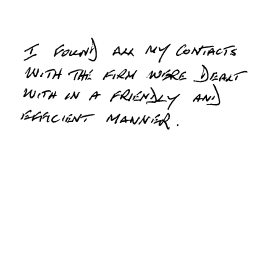 I FOUND ALL MY CONTACTS
WITH THE FIRM WERE DEALT
WITH IN A FRIENDLY AND
EFFICIENT MANNER.